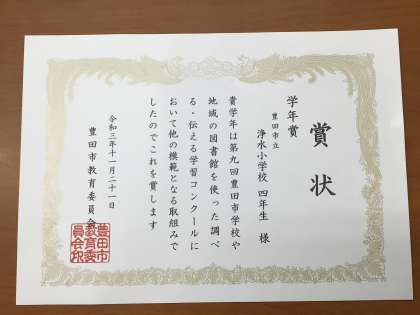 賞状
学年賞
豊田市立
浄水小学校 四年生 様
貴学年は第九回豊田市学校や
地域の図書館を使った調べ
る・伝える学習コンクールに
おいて他の模範となる取組みで
したのでこれを賞します
令和三年十一月二十一日
豊田市教育委員会
豊田市
教育委
員会印